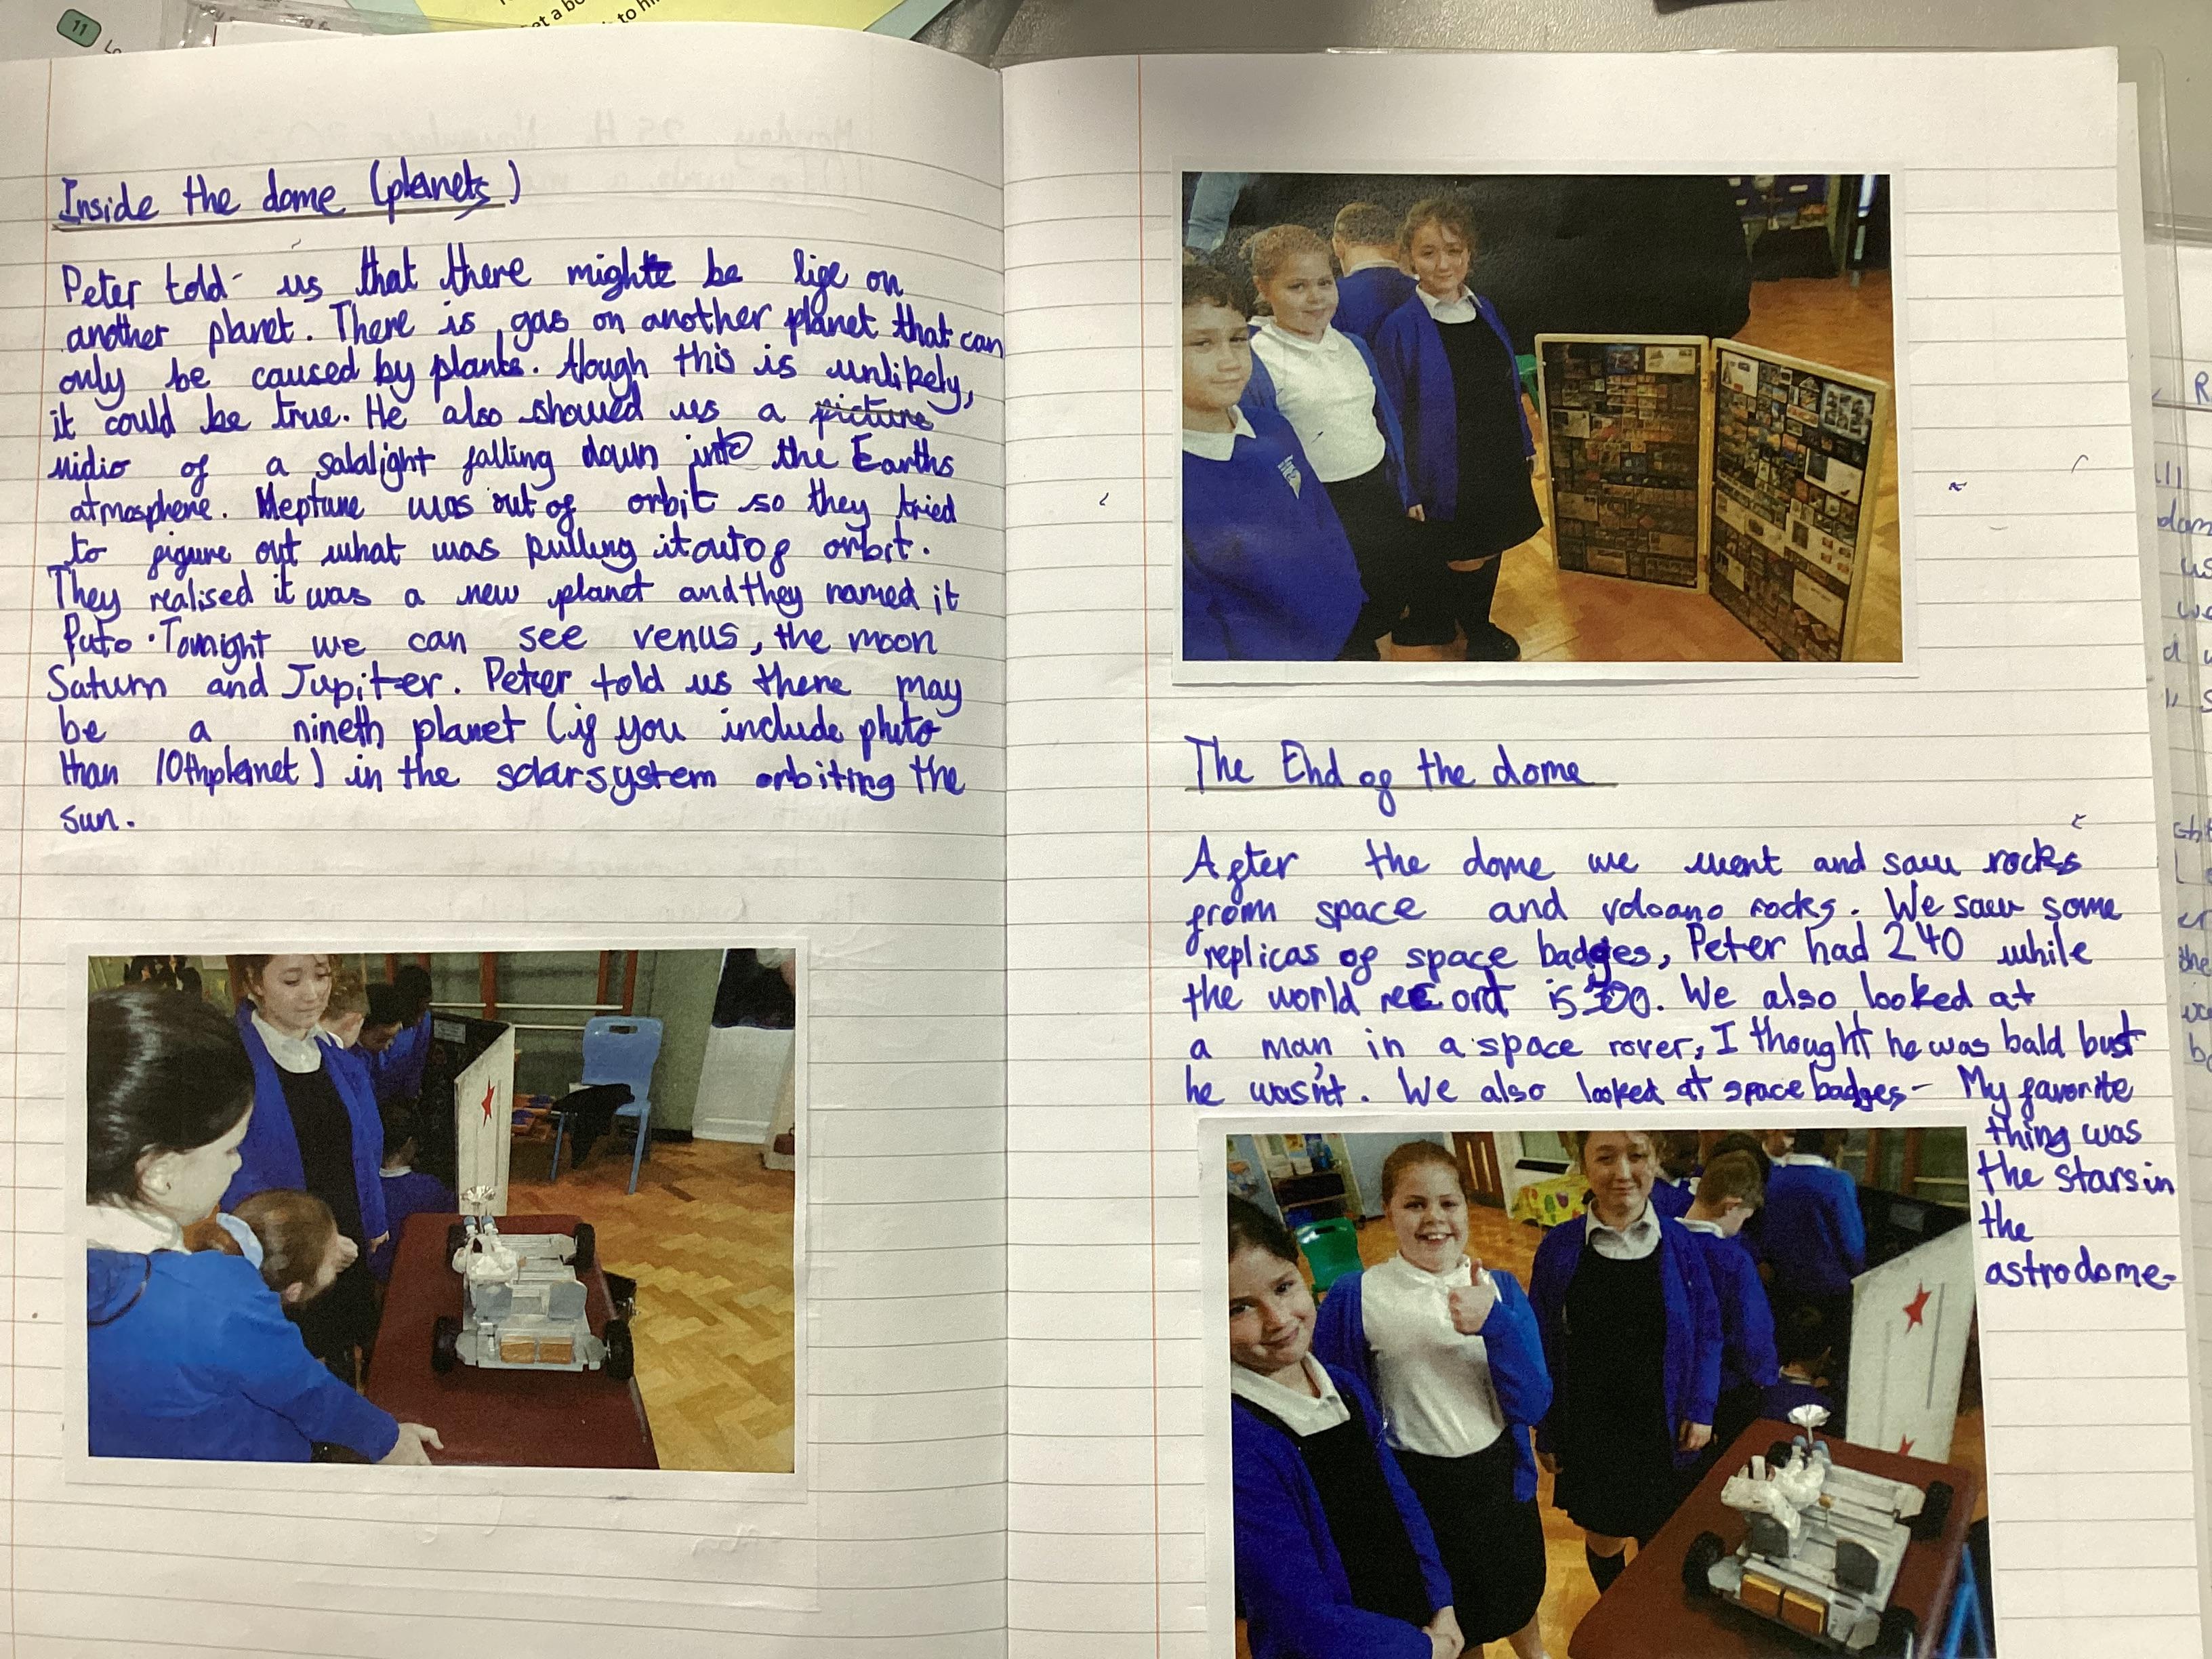 11
Inside the dome (planets)
Peter told us that there might be life on
another planet. There is gas on another planet that can
only be caused by plants. though this is unlikely,
it could be true. He also showed us a picture
vidio of a satalight falling down into the Earths
atmosphere. Neptune was out of orbit so they tried
to figure out what was pulling it out of orbit.
They realised it was a new planet and they named it
Puto. Tonight we can see venus, the moon
Saturn and Jupiter. Peter told us there may
be a nineth planet (if you include pluto
than 10th planet) in the solar system orbiting the
sun.
The End of the dome
After the dome we went and saw rocks
from space and volcano rocks. We saw some
replicas of space badges, Peter had 240 while
the world record is 300. We also looked at
a man in a space rover, I thought he was bald but
he wasn't. We also looked at space badges- My favorite
thing was
the stars in
the
astrodome-